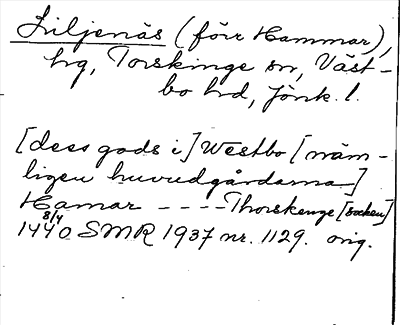 Liljenäs (förr Hammar),
hg, Torskinge sn, Väst-
bo hd, Jönk. l.
[dess gods i] Westbo [näm-
ligen huvudgårdarna]
Hamar - - - - Thorskenge [socken]
1440 8/4 SMR 1937 nr. 1129. orig.